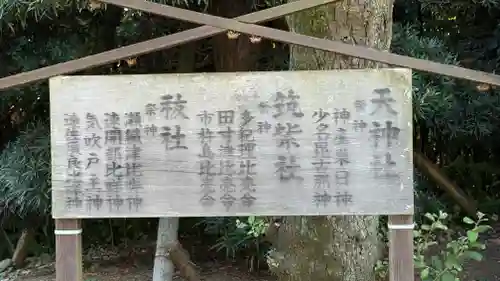 天神社
祭神
神産栄日神
少名毘古那神
筑紫社
祭神
多紀理比売命
田寸津比売命
市杵島比売命
祓社
祭神
瀬織津比咩神
速開都比咩神
気吹戸主神
速佐須良比咩神